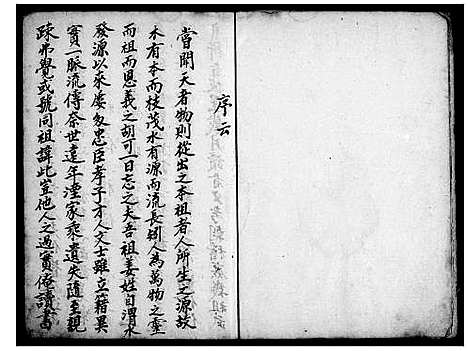 序云
嘗聞天者物則從出之本祖者人所生之源故
木有本而枝茂水有源而流長矧人為萬物之靈
而祖而恩義之胡可一日忘之夫吾祖姜姓自渭水
發源以來屡忠臣孝子才人文士雖立籍異
實一脈流傳奈世遠年湮家乘遺失隨至親
疎弗覺或號同祖諱此豈他人之過實俺讀書